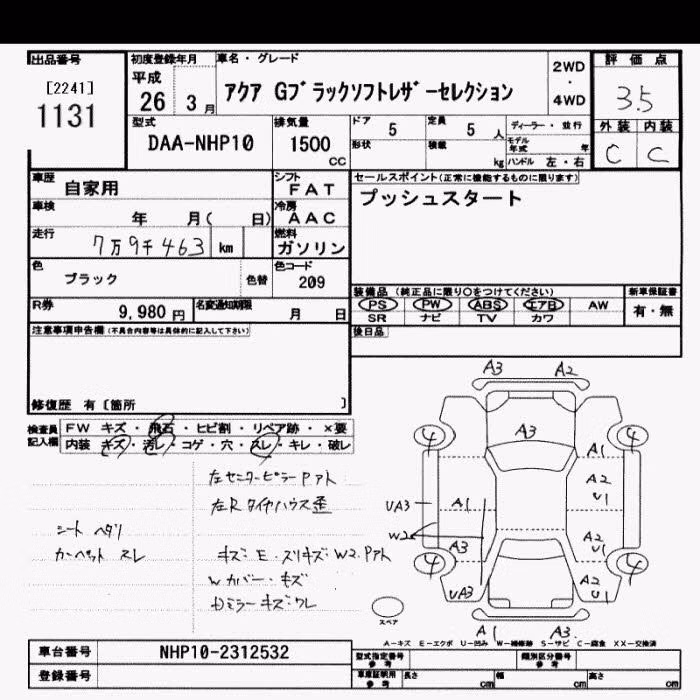 出品番号
[2241]
1131
初度登録年月
平成
26 3月
車名・グレード
アクア Gブラックソフトレザーセレクション
2WD
・
4WD
評価点
3.5
外装 内装
C C
型式
DAA-NHP10
排気量
1500
cc
ドア 5
定員 5 人
形状
積載 kg
ディーラー・並行
モデル年式 年
ハンドル 左・右
車歴
自家用
シフト
FAT
車検
年 月( 日)
冷房
AAC
走行
7万9千463 km
燃料
ガソリン
色
ブラック
色替
色コード
209
R券
9,980円
名変通知期限
月 日
セールスポイント(正常に機能するものに限ります)
プッシュスタート
装備品(純正品に限り○をつけてください)
新車保証書
PS PW ABS エアB AW
有・無
SR ナビ TV カワ
後日品
注意事項申告欄(不具合内容等は具体的に記入して下さい)
修復歴 有[箇所 ]
検査員記入欄
FW キズ・飛石・ヒビ割・リペア跡・×要
内装 キズ・汚レ・コゲ・穴・スレ・キレ・破レ
左センターピラーPアト
左Rタイヤハウス歪
シートヘタリ
カーペットスレ
キズ・E・スリキズ・W2・Pアト
Wカバー・キズ
Dミラーキズ・ワレ
A3 A2
4 4
A3
A1
A2
U1
UA3
A1
W2
A3
A2
U1
4 4
UA3
A2
U1
スペア
A1 A3
A-キズ E-エクボ U-凹み W-補修跡 S-サビ C-腐食 XX-交換済
車台番号
NHP10-2312532
登録番号
型式指定番号
参考
類別区分番号
参考
車庫証明用
参考
長さ cm
幅 cm
高さ cm